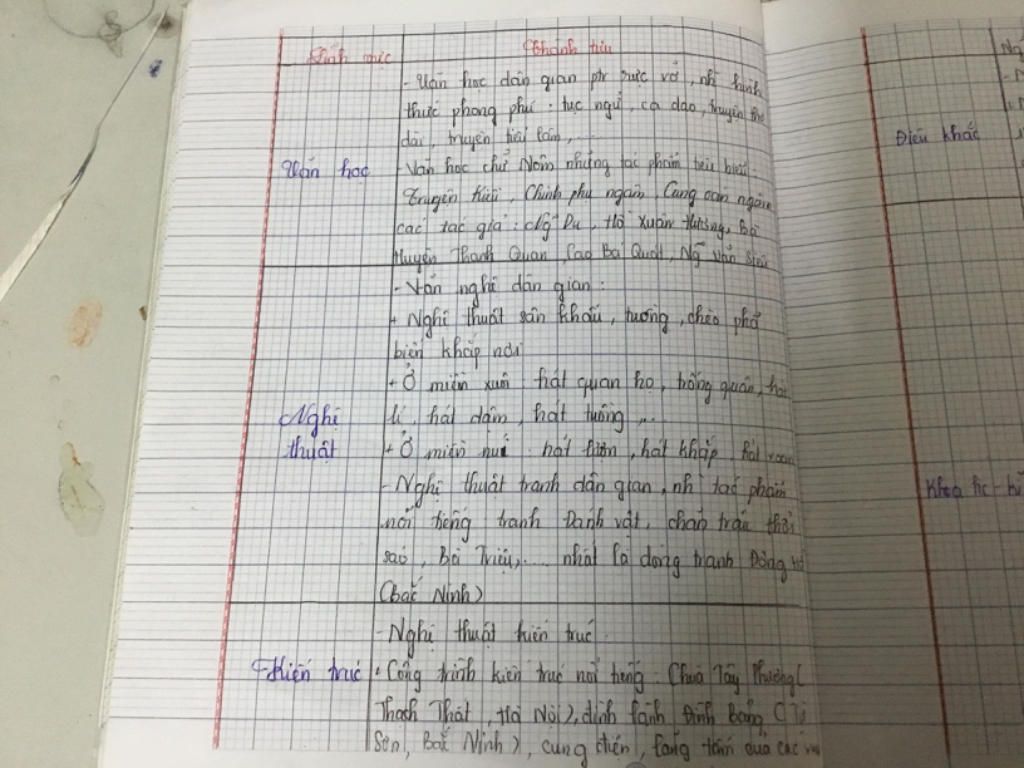 Lĩnh vực Thành tựu
- Văn học dân gian ptr rực rỡ, nh hình
thức phong phú: tục ngữ, ca dao, truyện thơ
dài, truyện tiếu lâm,...
Văn học
- Văn học chữ Nôm những tác phẩm tiêu biểu:
Truyện Kiều, Chinh phụ ngâm, Cung oán ngâm
các tác giả: Ng Du, Hồ Xuân Hương, Bà
Huyện Thanh Quan, Cao Bá Quát, Ng Văn Siêu
- Văn nghệ dân gian:
+ Nghệ thuật sân khấu, tuồng, chèo phổ
biến khắp nơi
+ Ở miền xuôi hát quan họ, trống quân, hát
lí, hát dặm, hát tuồng,...
Nghệ thuật
+ Ở miền núi: hát lượn, hát khắp, hát xoan
- Nghệ thuật tranh dân gian, nh tác phẩm
nổi tiếng tranh Đánh vật, chăn trâu thổi
sáo, Bà Triệu,... nhất là dòng tranh Đông Hồ
(Bắc Ninh)
- Nghệ thuật kiến trúc
Kiến trúc
+ Công trình kiến trúc nổi tiếng: Chùa Tây Phương (
Thạch Thất, Hà Nội), đình làng Đình Bảng (Từ
Sơn, Bắc Ninh), cung điện, lăng tẩm của các
Điêu khắc
Khoa hc - kĩ